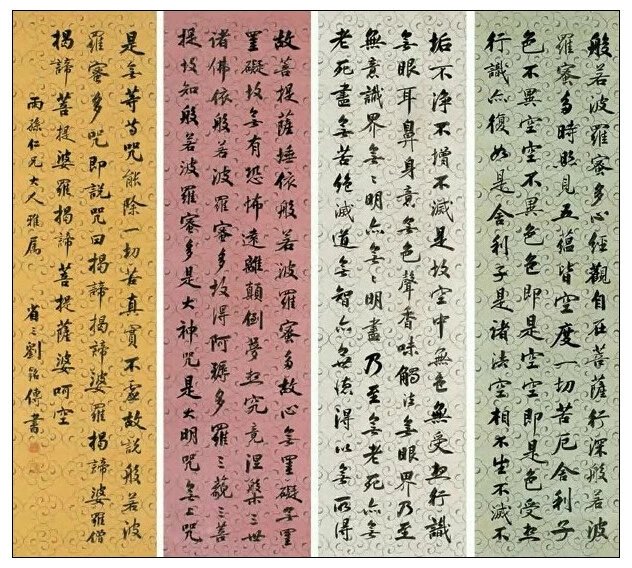 般若波羅蜜多心經觀自在菩薩行深般若波
羅蜜多時照見五蘊皆空度一切苦厄舍利子
色不異空空不異色色即是空空即是色受想
行識亦復如是舍利子是諸法空相不生不滅不
垢不淨不增不滅是故空中無色無受想行識
无眼耳鼻身意无色聲香味觸法无眼界乃至
無意識界无〻明亦无〻明盡乃至无老死亦无
老死盡无苦絕滅道无智亦无德得以无所得
故菩提薩埵依般若波羅蜜多故心无罣礙无罣
罣礙故无有恐怖遠離顛倒夢想究竟涅槃三世
諸佛依般若波羅蜜多故得阿耨多羅三藐三菩
提故知般若波羅蜜多是大神咒是大明咒无上咒
是无等等咒能除一切苦真實不虛故說般若波
羅蜜多咒即說咒曰揭諦揭諦婆羅揭諦婆羅僧
揭諦菩提婆羅揭諦菩提薩婆呵空
雨孫仁兄大人雅屬
省三劉銘傳書